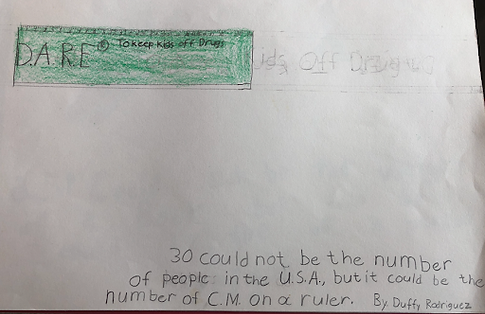 D.A.R.E® To Keep Kids Off Drugs
30 could not be the number
of people in the U.S.A., but it could be the
number of C.M. on a ruler. By Duffy Rodriguez